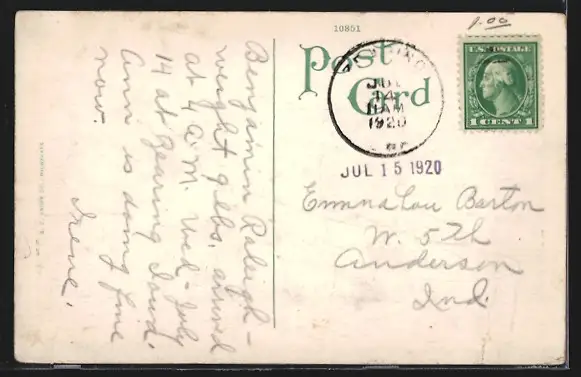 1.00
10851
Post
Card
U.S. POSTAGE
1 CENT 1
JUL
14
11 AM
1920
JUL 15 1920
Benjamin Raleigh -
weight 9 lbs. arrived
at 4 A.M. Wed - July
14 at Gearing
Ann is doing fine
now.
Irene.
Emma Lou Barton
W. 5th
Anderson
Ind.